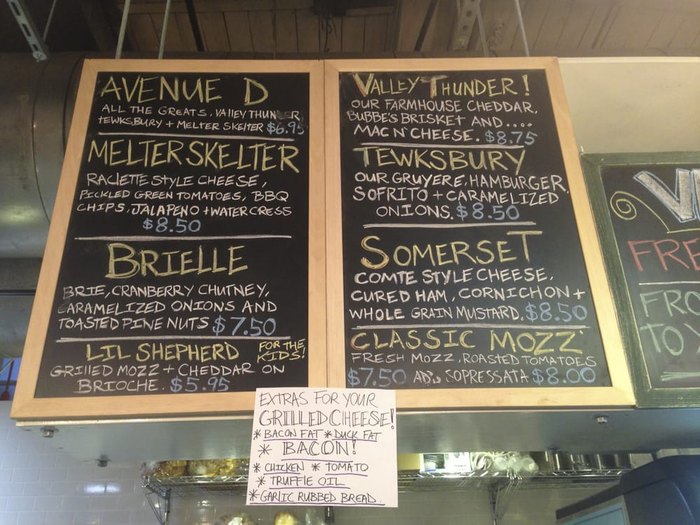 AVENUE D
ALL THE GREATS, VALLEY THUNDER,
TEWKSBURY + MELTER SKELTER $6.95
MELTER SKELTER
RACLETTE STYLE CHEESE,
PICKLED GREEN TOMATOES, BBQ
CHIPS, JALAPENO + WATER CRESS
$8.50
BRIELLE
BRIE, CRANBERRY CHUTNEY,
CARAMELIZED ONIONS AND
TOASTED PINE NUTS $7.50
LIL SHEPHERD FOR THE KIDS!
GRILLED MOZZ + CHEDDAR ON
BRIOCHE. $5.95
VALLEY THUNDER!
OUR FARMHOUSE CHEDDAR,
BUBBE'S BRISKET AND ....
MAC N' CHEESE. $8.75
TEWKSBURY
OUR GRUYERE, HAMBURGER,
SOFRITO + CARAMELIZED
ONIONS. $8.50
SOMERSET
COMTE STYLE CHEESE,
CURED HAM, CORNICHON +
WHOLE GRAIN MUSTARD. $8.50
CLASSIC MOZZ
FRESH MOZZ, ROASTED TOMATOES
$7.50 ADD SOPRESSATA $8.00
EXTRAS FOR YOUR
GRILLED CHEESE!
* BACON FAT * DUCK FAT
* BACON!
* CHICKEN * TOMATO
* TRUFFLE OIL
* GARLIC RUBBED BREAD
FRE
TO